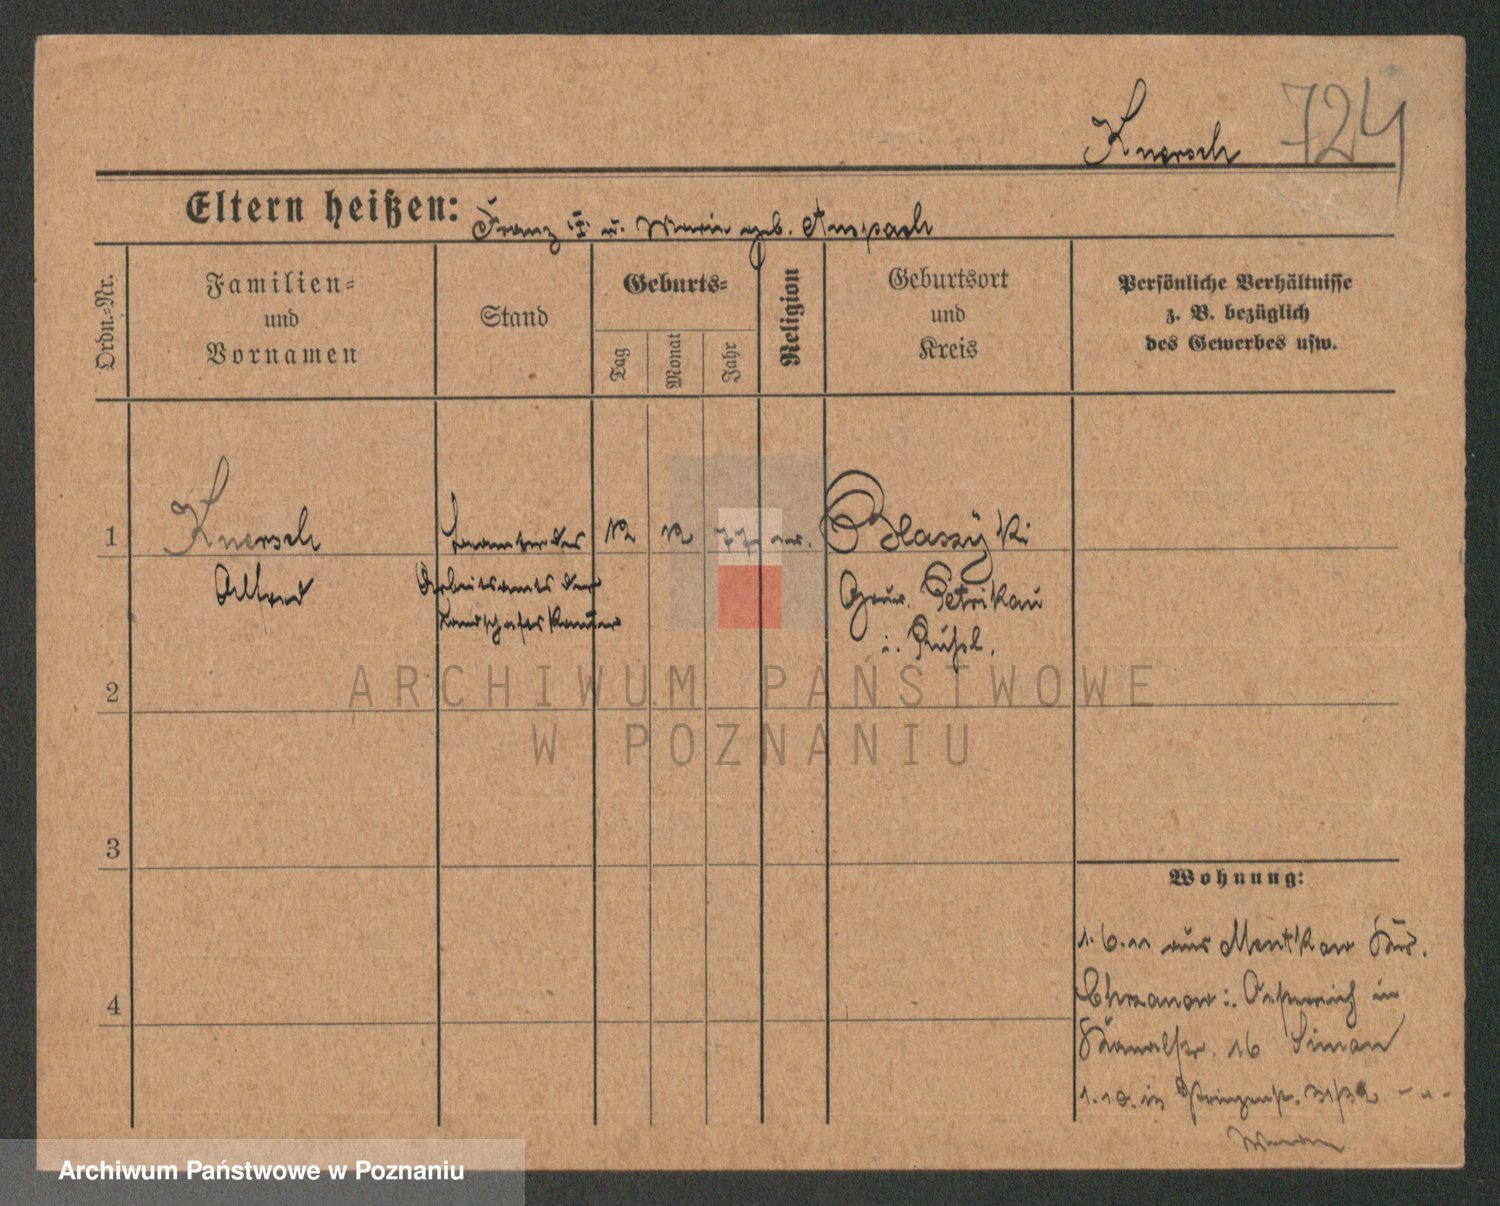 Knersch 724
Eltern heißen: Franz I u. Maria geb. Anspach
Ordn.=Nr.
Familien=
und
Vornamen
Stand
Geburts=
Tag
Monat
Jahr
Religion
Geburtsort
und
Kreis
Persönliche Verhältnisse
z. B. bezüglich
des Gewerbes usw.
1 Knersch Beamter des 12 12 77 ev. Blaszki
Alfred Arbeitsamts der Gouv. Petrikau
Landschaftskammer i. Rußl.
ARCHIWUM PAŃSTWOWE
W POZNANIU
2
3
4
Wohnung:
1.6.11 aus
Chrzanow i. Oesterreich in
Kanalstr. 16 Siman
1.10. in Prinzenstr. 31/32 - " -
Archiwum Państwowe w Poznaniu